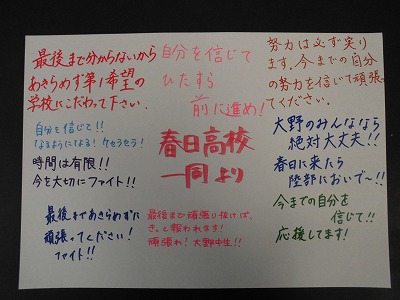 最後まで分からないから
あきらめず第1希望の
学校にこだわって下さい.
自分を信じて!!
なるようになる!ケセラセラ!
時間は有限!!
今を大切にファイト!!
最後まであきらめずに
頑張ってください!
ファイト!!
自分を信じて
ひたすら
前に進め!
春日高校
一同より
最後まで頑張り抜けば、
きっと報われます!
頑張れ!大野中生!!
努力は必ず実り
ます.今までの自分
の努力を信じて頑張っ
てください.
大野のみんななら
絶対大丈夫!!
春日に来たら
陸部においで~!!
今までの自分を
信じて!!
応援してます!